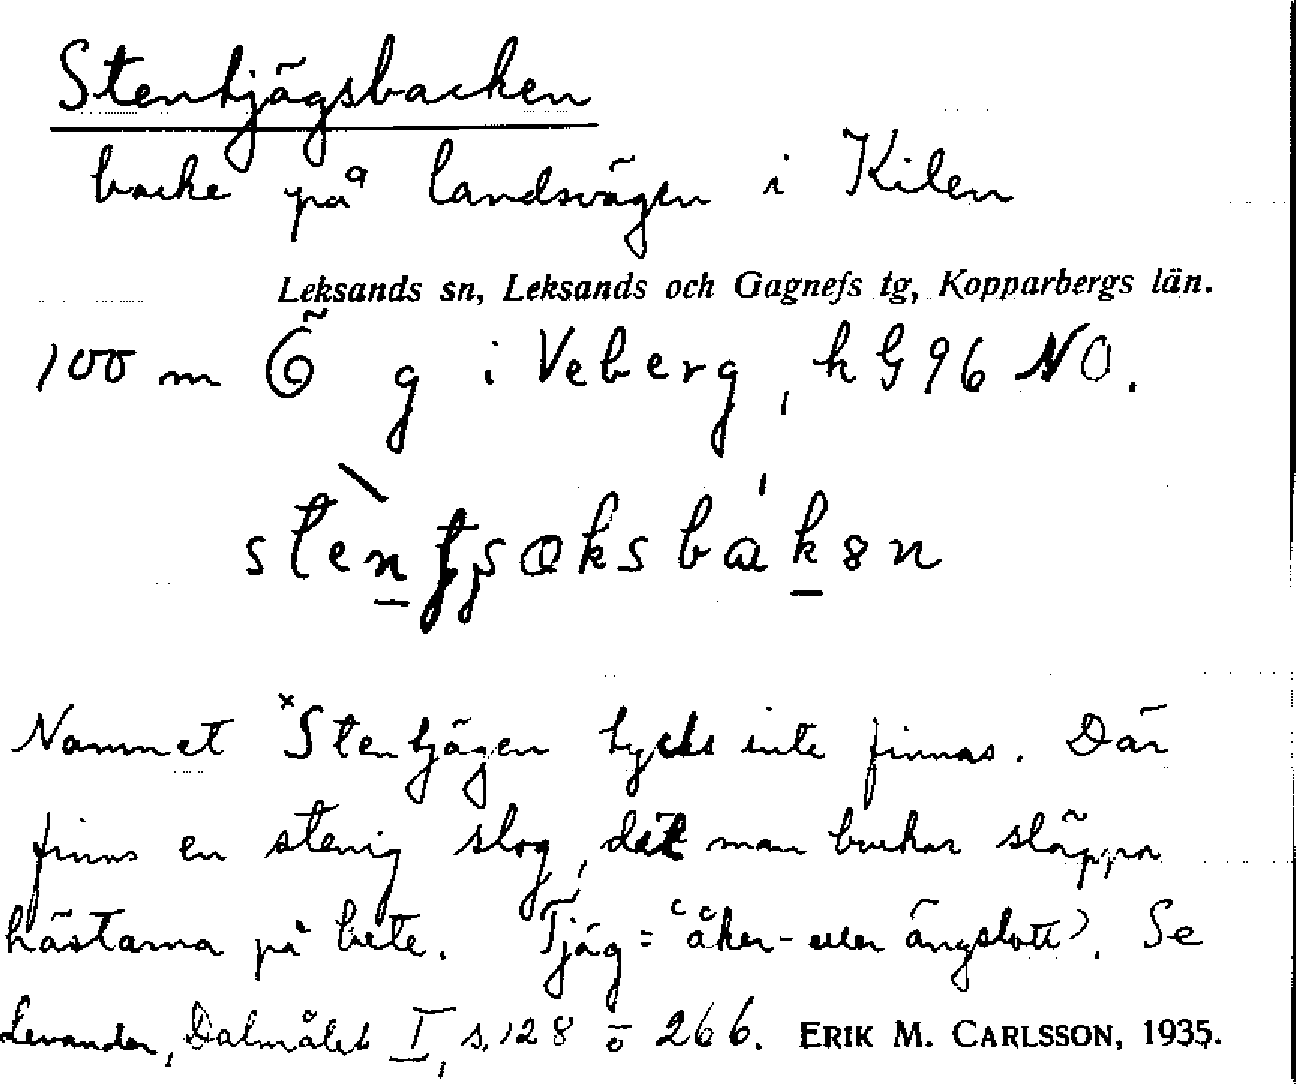 Stentjägsbacken
backe på landsvägen i Kilen
Leksands sn, Leksands och Gagnefs tg, Kopparbergs län.
100 m Ö g i Veberg, k G 96 NO.
Namnet ˣStentjägen tycks inte finnas. Där
finns en stenig slog, där man brukar släppa
hästarna på bete. Tjäg = 'åker- eller ängslott'. Se
Levander, Dalmålet I, s. 128 o 266. ERIK M. CARLSSON, 1935.